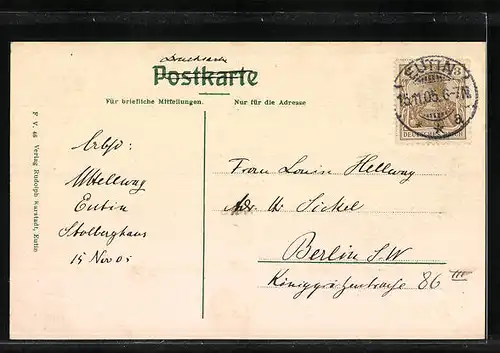 Drucksache
Postkarte
Für briefliche Mitteilungen.
Nur für die Adresse
EUTIN
15.11.05. 6-7N.
* a
DEUTSCHES REICH
F. V. 46 Verlag Rudolph Karstadt, Eutin
Eutin
Stolberghaus
15 Nov 05
Frau Louise Hellwag
Sickel
Berlin S.W
Königgrätzerstrasse 86 III